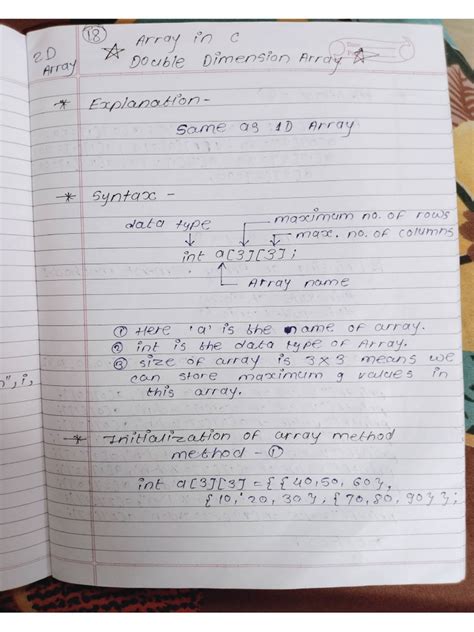 2D
Array
18
Array in C
Double Dimension Array
* Explanation -
Same as 1D Array
* Syntax -
data type
maximum no. of rows
max. no. of columns
int a[3][3];
Array name
① Here 'a' is the name of array.
② int is the data type of Array.
③ size of array is 3 x 3 means we
can store maximum 9 values in
this array.
* Initialization of array method
method - ①
int a[3][3] = { { 40, 50, 60 },
{ 10, 20, 30 }, { 70, 80, 90 } };
", i,